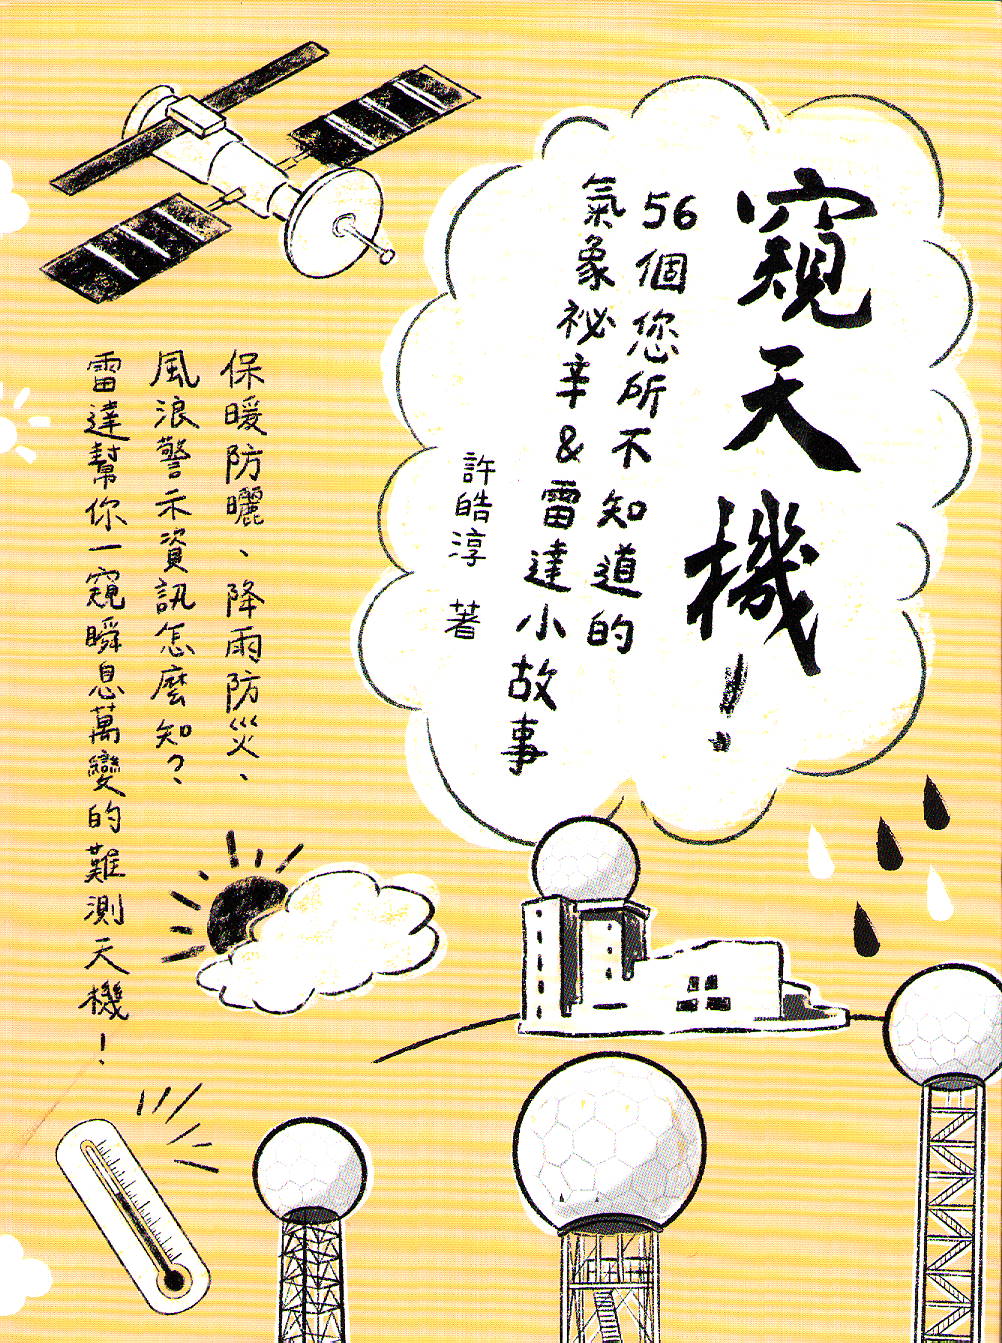 窺天機!
56個您所不知道的
氣象祕辛&雷達小故事
許皓淳 著
保暖防曬、降雨防災、
風浪警示資訊怎麼知?
雷達幫你一窺瞬息萬變的難測天機!